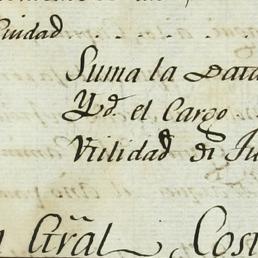 Ciudad
Suma la Data
Yd. el Cargo
Vtilidad
Gral Cost